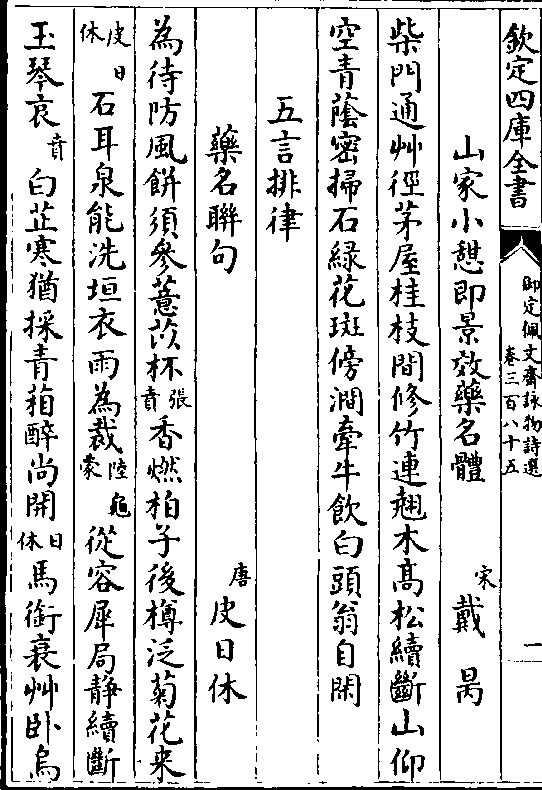 欽定四庫全書
御定佩文齋詠物詩選
卷三百八十五
一
山家小憩即景效藥名體 宋 戴昺
柴門通艸徑茅屋桂枝間修竹連翹木高松續斷山仰
空青蔭密掃石緑花斑傍澗牽牛飲白頭翁自閑
五言排律
藥名聯句 唐 皮日休
為待防風餅須參薏苡杯張賁香燃柏子後樽泛菊花来
皮日休石耳泉能洗垣衣雨為裁陸龜蒙從容犀局静續斷
玉琴哀賁白芷寒猶採青葙醉尚開日休馬銜衰艸卧烏